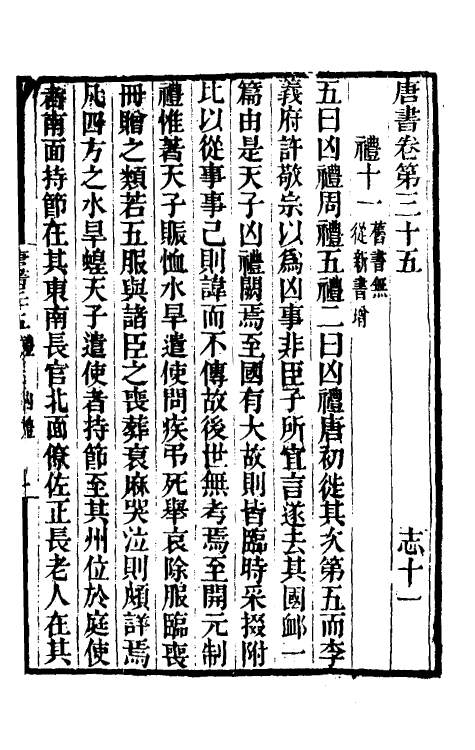 唐書卷第三十五　志十一
禮十一
舊書無
從新書增
五曰凶禮周禮五禮二曰凶禮唐初徙其次第五而李
義府許敬宗以爲凶事非臣子所宜言遂去其國䘏一
篇由是天子凶禮闕焉至國有大故則皆臨時采掇附
比以從事事已則諱而不傳故後世無考焉至開元制
禮惟著天子賑恤水旱遣使問疾弔死舉哀除服臨喪
冊贈之類若五服與諸臣之喪葬衰麻哭泣則頗詳焉
凡四方之水旱蝗天子遣使者持節至其州位於庭使
者南面持節在其東南長官北面僚佐正長老人在其